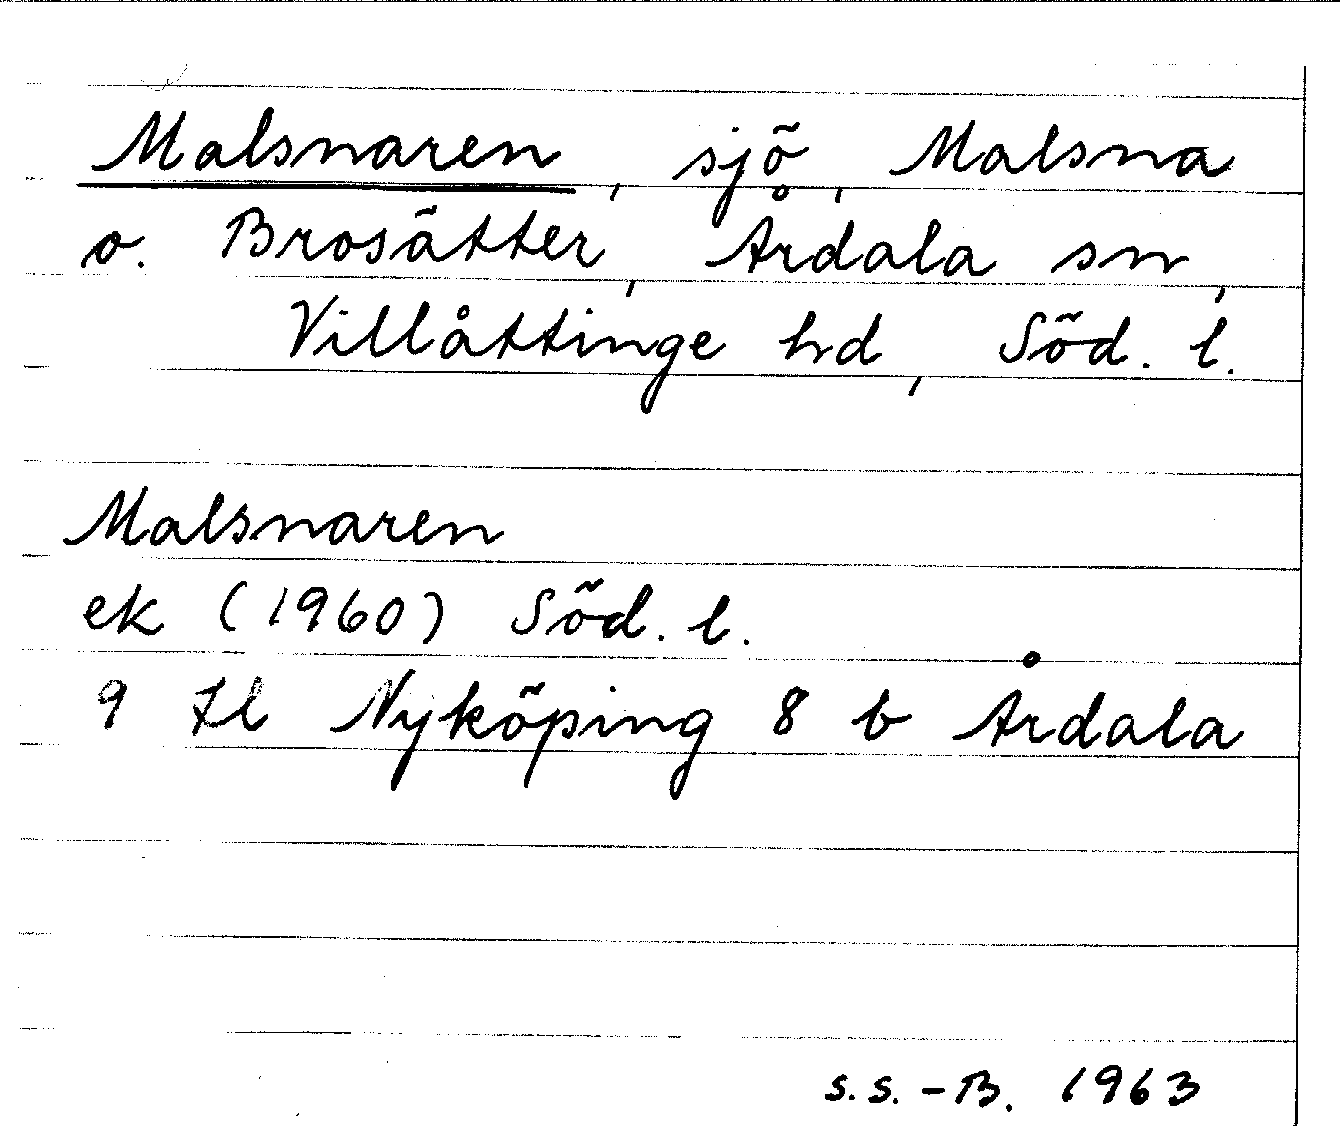 Malsnaren, sjö, Malsna
o. Brosätter, Årdala sn,
Villåttinge hd, Söd. l.
Malsnaren
ek (1960) Söd. l.
9 Hl Nyköping 8 b Årdala
S.S.-B. 1963